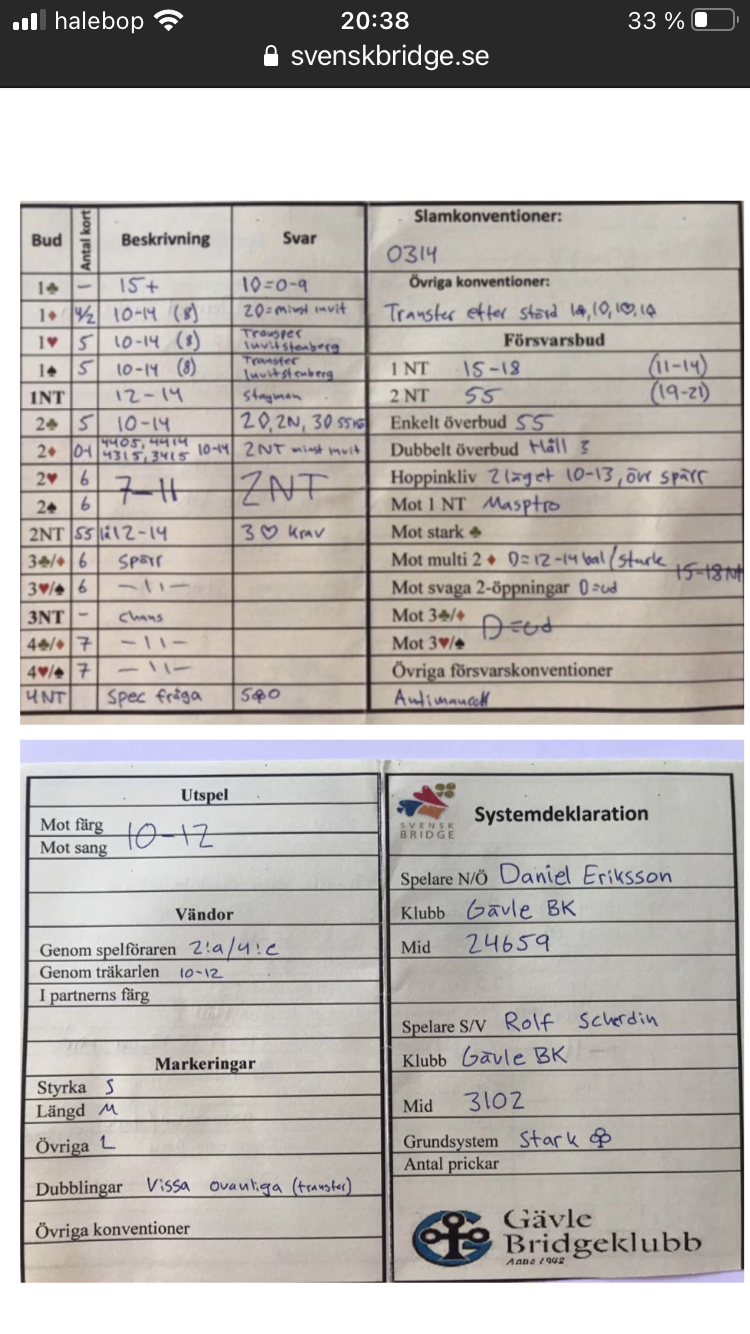 halebop
20:38
33 %
svenskbridge.se
Bud Antal kort Beskrivning Svar
1♣ – 15+ 1♢=0-9
1♦ 4/2 10-14 (8) 2♢=minst invit
1♥ 5 10-14 (8) Transfer Invitstenberg
1♠ 5 10-14 (8) Transfer Invitstenberg
1NT 12-14 Stayman
2♣ 5 10-14 2♢, 2N, 3♢
2♦ 4405, 4414 4315, 3415 10-14 2NT minst invit
2♥ 6 7-11 2NT
2♠ 6
2NT 55 12-14 3♡ Krav
3♣/♦ 6 Spärr
3♥/♠ 6 –11–
3NT – Chans
4♣/♦ 7 –11–
4♥/♠ 7 –11–
4NT Spec fråga
Slamkonventioner:
0314
Övriga konventioner:
Transfer efter störd
Försvarsbud
1 NT 15-18 (11-14)
2 NT 55 (19-21)
Enkelt överbud 55
Dubbelt överbud Håll ?
Hoppinkliv 2 läget 10-13, övr spärr
Mot 1 NT Masptro
Mot stark ♣
Mot multi 2 ♦ D=12-14 bal/stark 15-18 NT
Mot svaga 2-öppningar D=ud
Mot 3♣/♦ D=ud
Mot 3♥/♠
Övriga försvarskonventioner
Utspel
Mot färg 10-12
Mot sang
Vändor
Genom spelföraren 2:a/4:e
Genom träkarlen 10-12
I partnerns färg
Markeringar
Styrka S
Längd M
Övriga L
Dubblingar Vissa ovanliga (transfer)
Övriga konventioner
SVENSK
BRIDGE
Systemdeklaration
Spelare N/Ö Daniel Eriksson
Klubb Gävle BK
Mid 24659
Spelare S/V Rolf Scherdin
Klubb Gävle BK
Mid 3102
Grundsystem Stark ♧
Antal prickar
Gävle
Bridgeklubb
Anno 1942